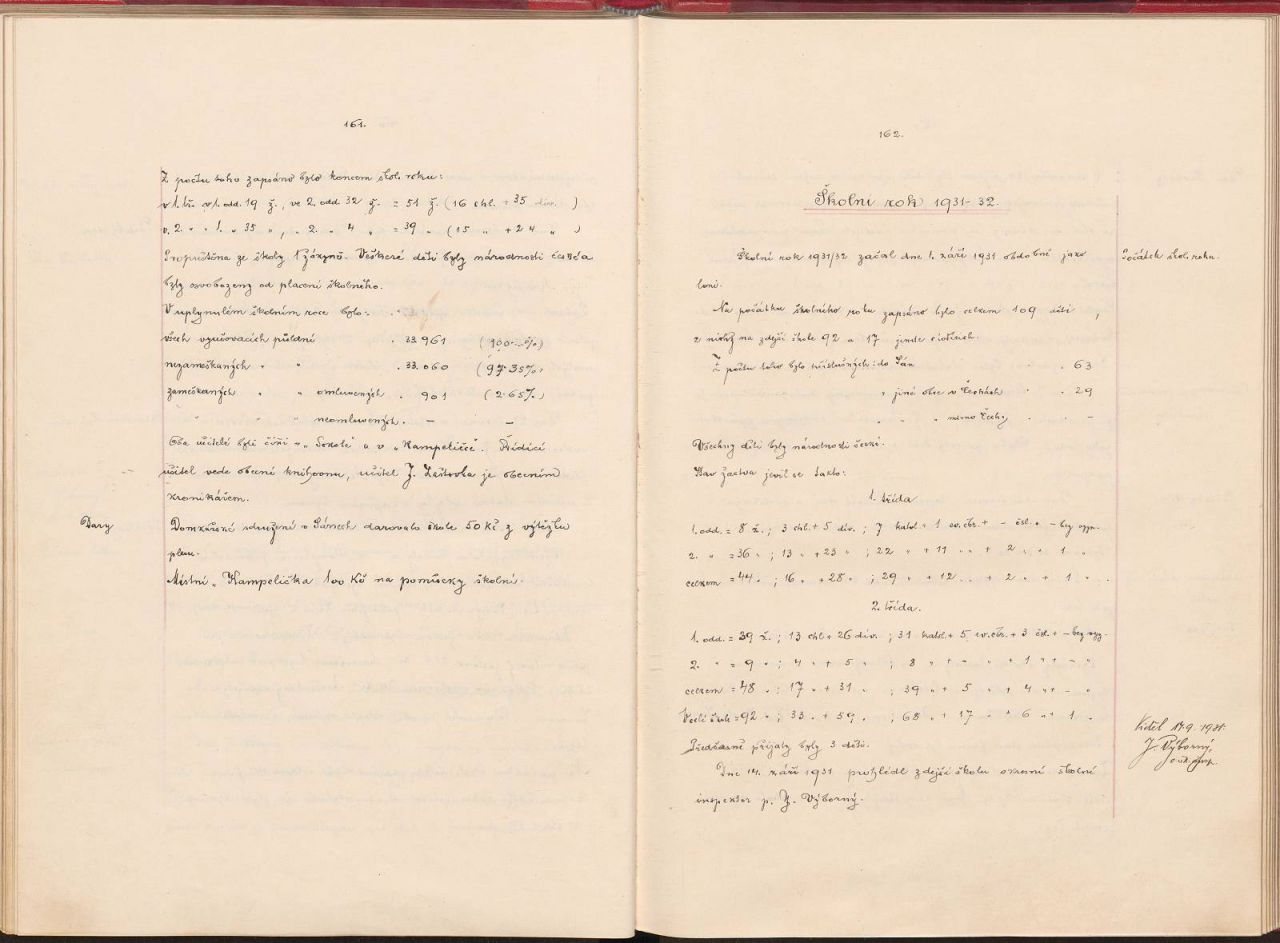 161.
Z počtu toho zapsáno bylo koncem škol. roku:
v 1. tř. v 1. odd. 19 ž., ve 2. odd 32 ž. = 51 ž. (16 chl. + 35 div. )
v. 2. " " 1. " 35 " , " 2. " 4 " = 39 " (15 " + 24 " )
Propuštěna ze školy 1 žákyně. Veškeré děti byly národnosti české a
byly osvobozeny od placení školného.
V uplynulém školním roce bylo:
všech vyučovacích půldnů . 33.961 (100.-%)
nezameškaných " " . 33.060 (97.35%)
zameškaných " " omluvených . 901 (2.65%)
" " " neomluvených . - -
Oba učitelé byli činni v " Sokole" a v " Kampeličce". Řídící
učitel vede obecní knihovnu, učitel J. Laštovka je obecním
kronikářem.
Dary
Domkářské sdružení v Lánech darovalo škole 50 Kč z výtěžku
plesu.
Místní " Kampelička 100 Kč na pomůcky školní.
162.
Školní rok 1931-32.
Školní rok 1931/32 začal dne 1. září 1931 obdobně jako
Počátek škol. roku.
loni.
Na počátku školního roku zapsáno bylo celkem 109 dětí ,
z nichž na zdejší škole 92 a 17 jinde
Z počtu toho bylo příslušných: do Lán . . 63
" jiné obce v Čechách . . 29
" " mimo Čechy . . -
Všechny děti byly národnosti české.
Stav žactva jevil se takto:
1. třída
1. odd. = 8 ž. ; 3 chl. + 5 div. ; 7 katol. + 1 ev. čbr. + - čsl. + - bez vyzn.
2. " = 36 " ; 13 " + 23 " ; 22 " + 11 " " + 2 " + 1 "
celkem = 44 " ; 16 " + 28 " ; 29 " + 12 " " + 2 " + 1 "
2. třída.
1. odd. = 39 ž. ; 13 chl. + 26 div. ; 31 katol. + 5 ev. čbr. + 3 čsl. + - bez vyz.
2. " = 9 " ; 4 " + 5 " ; 8 " + " " + 1 " + - "
celkem = 48 " ; 17 " + 31 " ; 39 " + 5 " + 4 " + - "
Vcelé škole = 92 " ; 33 " + 59 " ; 68 " + 17 " + 6 " + 1 "
Předčasně přijaty byly 3 děti.
Dne 14. září 1931 prohlédl zdejší školu okresní školní
inspektor p. J. Výborný.
Viděl 14.9.1931.
J. Výborný,